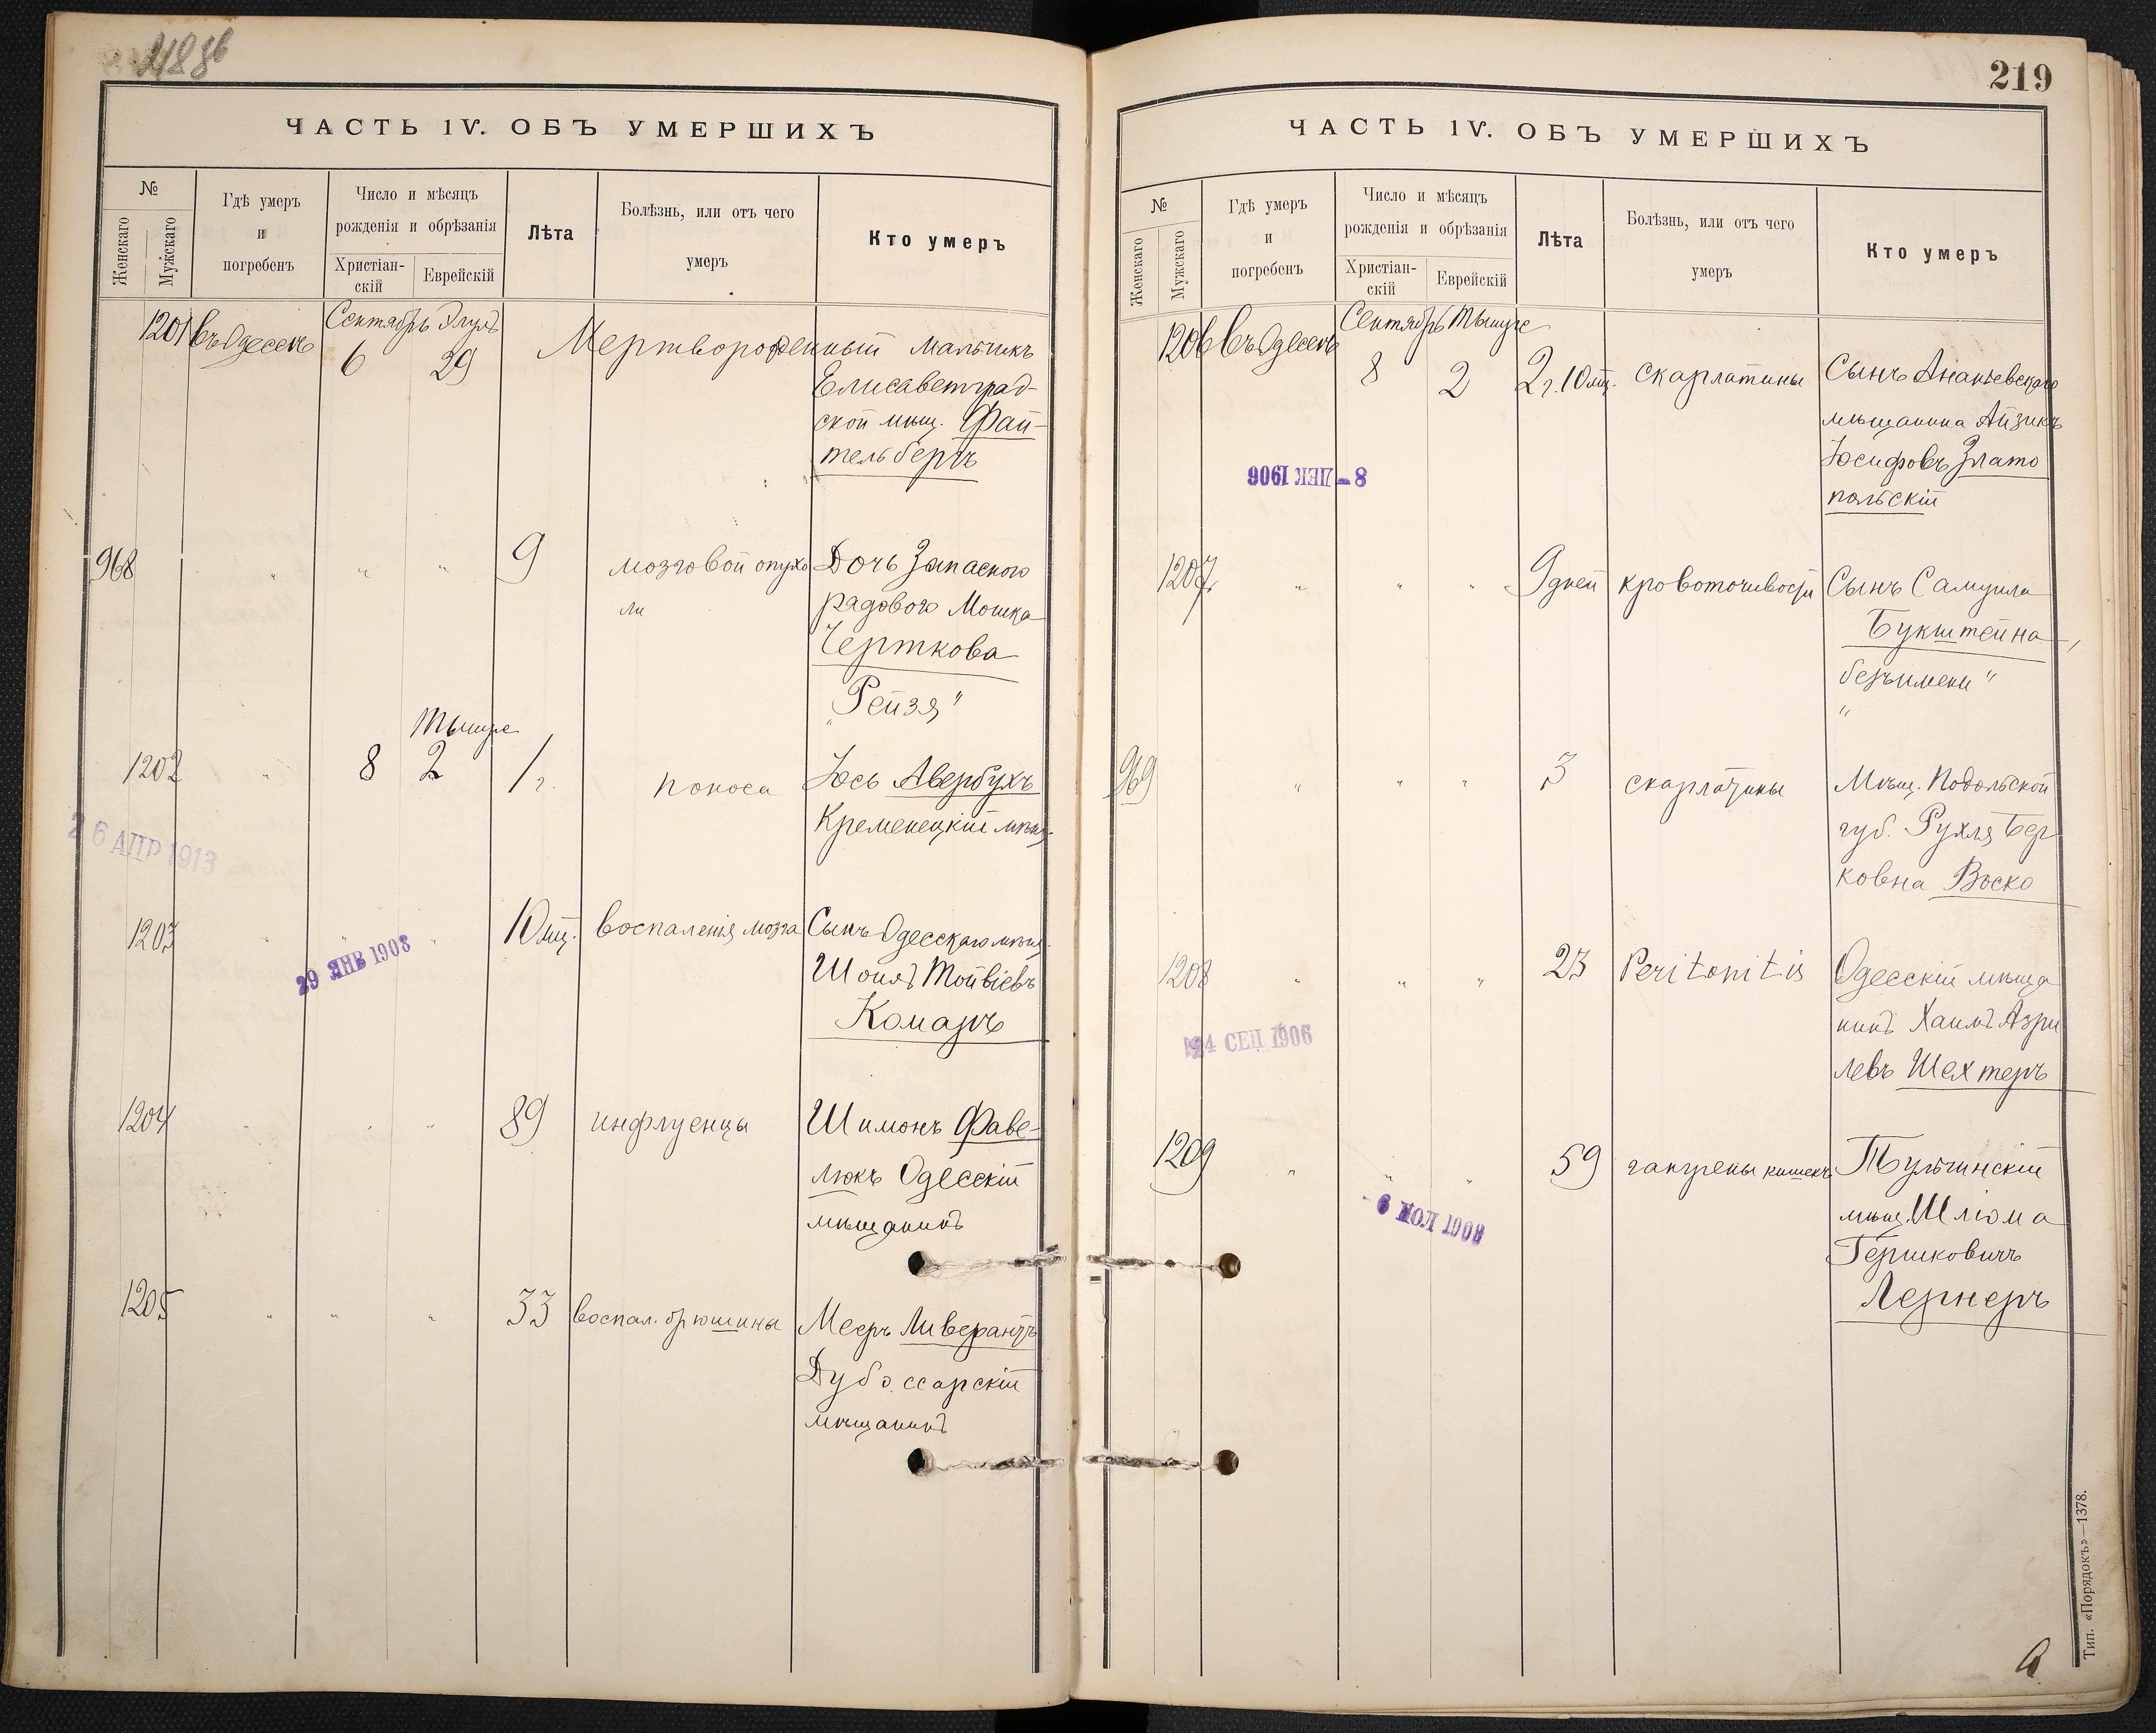 ЧАСТЬ IV. ОБЪ УМЕРШИХЪ
№
Женскаго
Мужскаго
Гдѣ умеръ
и
погребенъ
Число и мѣсяцъ
рожденія и обрѣзанія
Христіан-
скій
Еврейскій
Лѣта
Болѣзнь, или отъ чего
умеръ
Кто умеръ
Сентябрь Элулъ
1201 въ Одессѣ 6 29 Мертворожденный мальчикъ
Елисаветград-
ской мѣщ. Фай-
тельбергъ
968 " " " 9 мозговой опухо Дочь Запасного
ли рядового Мошка
Черткова
„Рейзя"
Тышре
1202 " 8 2 1 г. поноса Іось Авербухъ
Кременецкій мѣщ.
26 АПР 1913
1203 " " " 10 мц. воспаленія мозга Сынъ Одесскаго мѣщ.
29 ЯНВ 1908
Шоилъ Тойвіевъ
Комаръ
1204 " " " 89 инфлуенцы Шимонъ Фаве-
люкъ Одесскій
мѣщанинъ
1205 " " " 33 воспал. брюшины Мееръ Ливерантъ
Дубоссарскій
мѣщанинъ
219
ЧАСТЬ IV. ОБЪ УМЕРШИХЪ
№
Женскаго
Мужскаго
Гдѣ умеръ
и
погребенъ
Число и мѣсяцъ
рожденія и обрѣзанія
Христіан-
скій
Еврейскій
Лѣта
Болѣзнь, или отъ чего
умеръ
Кто умеръ
Сентябрь Тышре
1206 въ Одессѣ 8 2 2 г. 10 мц. скарлатины Сынъ Ананьевскаго
мѣщанина Айзикъ
Іосифовъ Злато
польскій
8 - ДЕК 1906
1207 " " " 9 дней кровоточивости Сынъ Самуила
Букштейна
безъимени "
"
969 " " " 3 скарлатины Мѣщ. Подольской
губ. Рухля Бер
ковна Воско
1208 " " " 23 Peritonitis Одесскій мѣща
нинъ Хаимъ Азри
левъ Шехтеръ
24 СЕН 1906
1209 " " " 59 гангрены кишекъ Тульчинскій
мѣщ. Шліома
Гершковичъ
Лернеръ
Тип. «Порядокъ»—1378.